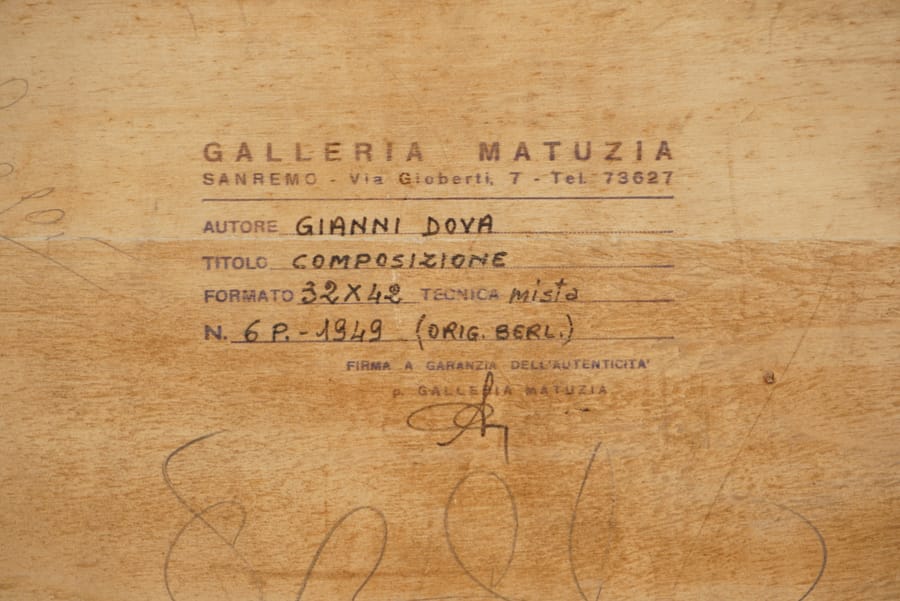 GALLERIA MATUZIA
SANREMO - Via Gioberti, 7 - Tel. 73627
AUTORE GIANNI DOVA
TITOLO COMPOSIZIONE
FORMATO 32X42 TECNICA mista
N. 6 P. - 1949 (ORIG. BERL.)
FIRMA A GARANZIA DELL'AUTENTICITA'
p. GALLERIA MATUZIA